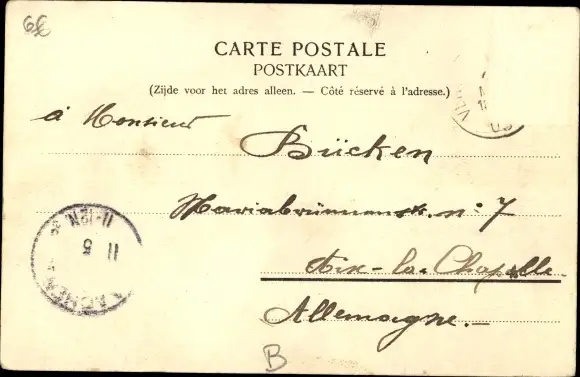 CARTE POSTALE
POSTKAART
(Zijde voor het adres alleen. — Côté réservé à l'adresse.)
à Monsieur
Bücken
Mariabrunnenstr. no: 7
Aix-la-Chapelle
Allemagne.—
AACHEN
11 5
11-12N
B